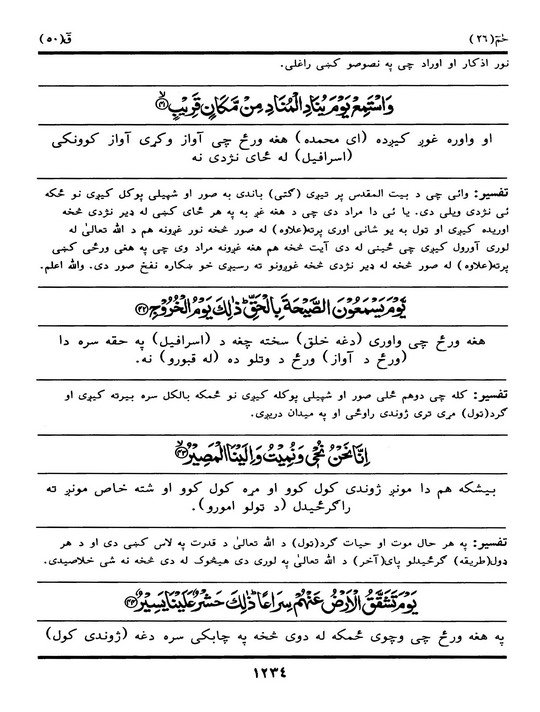 حٰمٓ (٢٦) قٓ (٥٠)
نور اذكار او اوراد چی په نصوصو كښی راغلی.
وَاسْتَمِعْ يَوْمَ يُنَادِ الْمُنَادِ مِنْ مَّكَانٍ قَرِيْبٍ ﴿٤١﴾
او واوره غوږ كيږده (ای محمده) هغه ورځ چی آواز وكړی آواز كوونكی
(اسرافيل) له ځای نژدی نه
تفسير: وائی چی د بيت المقدس پر تيږی (گټی) باندی به صور او شپيلی پوكل كيږی نو ځكه
ئی نژدی ويلی دی. يا ئی دا مراد دی چی د هغه غږ به په هر ځای كښی له ډير نژدی څخه
اوريده كيږی او ټول به يو شانی اوری پرته(علاوه) له صور څخه نور غږونه هم د الله تعالیٰ له
لوری آورول كيږی چی ځينی له دی آيت څخه هم هغه غږونه مراد وی چی په هغی ورځی كښی
پرته(علاوه) له صور څخه له ډير نژدی څخه غوږونو ته رسيږی خو ښكاره نفخ صور دی. والله اعلم.
يَوْمَ يَسْمَعُوْنَ الصَّيْحَةَ بِالْحَقِّ ۭ ذٰلِكَ يَوْمُ الْخُرُوْجِ ﴿٤٢﴾
هغه ورځ چی واوری (دغه خلق) سخته چغه د (اسرافيل) په حقه سره دا
(ورځ د آواز) ورځ د وتلو ده (له قبورو) نه.
تفسير: كله چی دوهم ځلی صور او شپيلی پوكله كيږی نو ځمكه بالكل سره بيرته كيږی او
گرد(ټول) مړی تری ژوندی راوځی او په ميدان دريږی.
اِنَّا نَحْنُ نُحْيٖ وَنُمِيْتُ وَاِلَيْنَا الْمَصِيْرُ ﴿٤٣﴾
بيشكه هم دا مونږ ژوندی كول كوو او مړه كول كوو او شته خاص مونږ ته
راگرځيدل (د ټولو امورو).
تفسير: په هر حال موت او حيات گرد(ټول) د الله تعالیٰ د قدرت په لاس كښی دی او د هر
ډول(طريقه) گرځيدلو پای(آخر) د الله تعالیٰ په لوری دی هيڅوک له دی څخه نه شی خلاصيدی.
يَوْمَ تَشَقَّقُ الْاَرْضُ عَنْهُمْ سِرَاعًا ۭ ذٰلِكَ حَشْرٌ عَلَيْنَا يَسِيْرٌ ﴿٤٤﴾
په هغه ورځ چی وچوی ځمكه له دوی څخه په چابكی سره دغه (ژوندی كول)
١٢٣٤